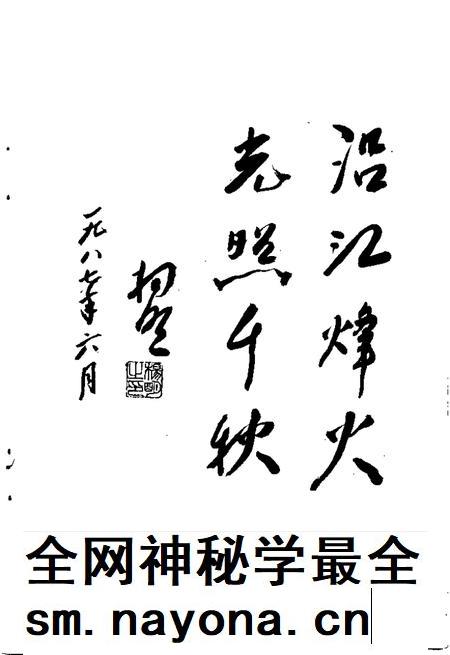 沿江烽火
光照千秋
杨明
楊明之印
一九八七年六月
全网神秘学最全
sm.nayona.cn